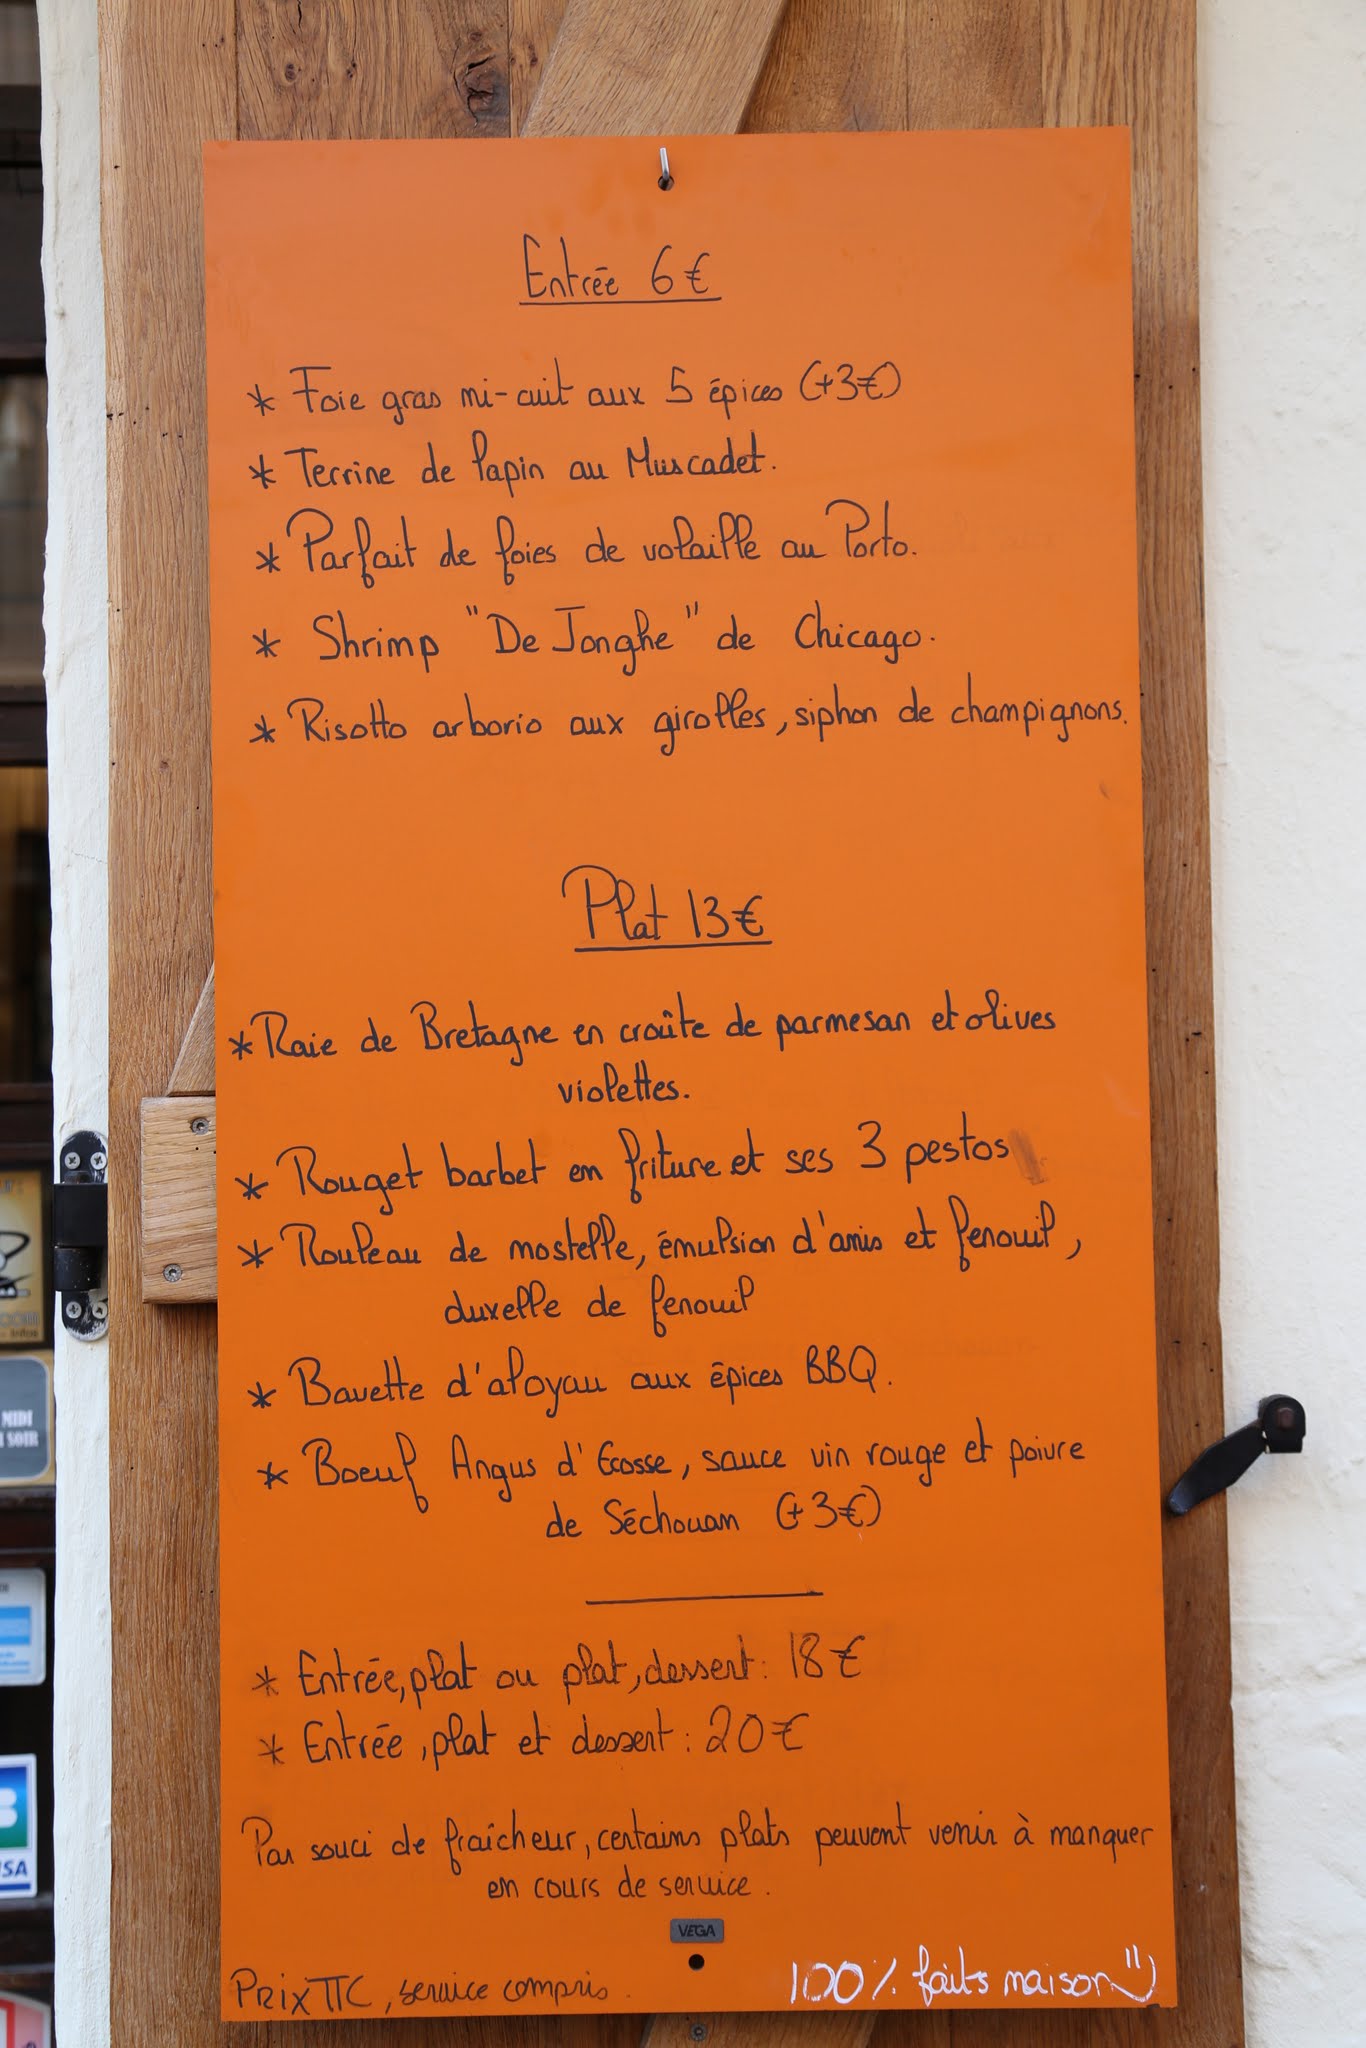 Entrée 6€
* Foie gras mi-cuit aux 5 épices (+3€)
* Terrine de lapin au Muscadet.
* Parfait de foies de volaille au Porto.
* Shrimp "De Jonghe" de Chicago.
* Risotto arborio aux girolles, siphon de champignons.
Plat 13€
* Raie de Bretagne en croûte de parmesan et olives
violettes.
* Rouget barbet en friture et ses 3 pestos
* Rouleau de mostelle, émulsion d'anis et fenouil,
duxelle de fenouil
* Bavette d'aloyau aux épices BBQ.
* Boeuf Angus d'Ecosse, sauce vin rouge et poivre
de Séchouan (+3€)
* Entrée, plat ou plat, dessert : 18€
* Entrée, plat et dessert : 20€
Par souci de fraîcheur, certains plats peuvent venir à manquer
en cours de service.
VEGA
Prix TTC, service compris.
100% faits maison
MIDI
SOIR